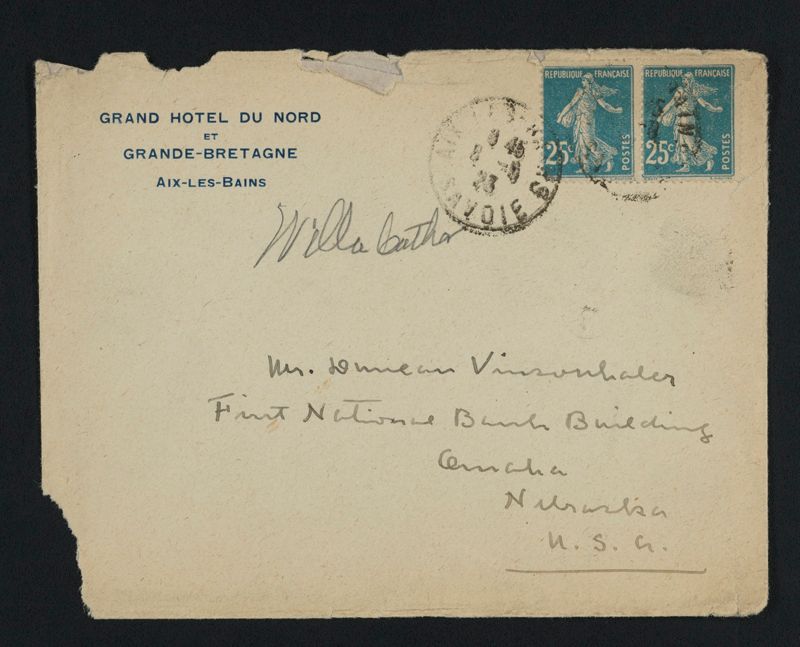 GRAND HOTEL DU NORD
ET
GRANDE-BRETAGNE
AIX-LES-BAINS
REPUBLIQUE FRANÇAISE
25c
POSTES
REPUBLIQUE FRANÇAISE
25c
POSTES
AIX-LES-BAINS
8 45
8 -9
23
SAVOIE
Willa Cather
Mr. Duncan Vinsonhaler
First National Bank Building
Omaha
Nebraska
U. S. A.